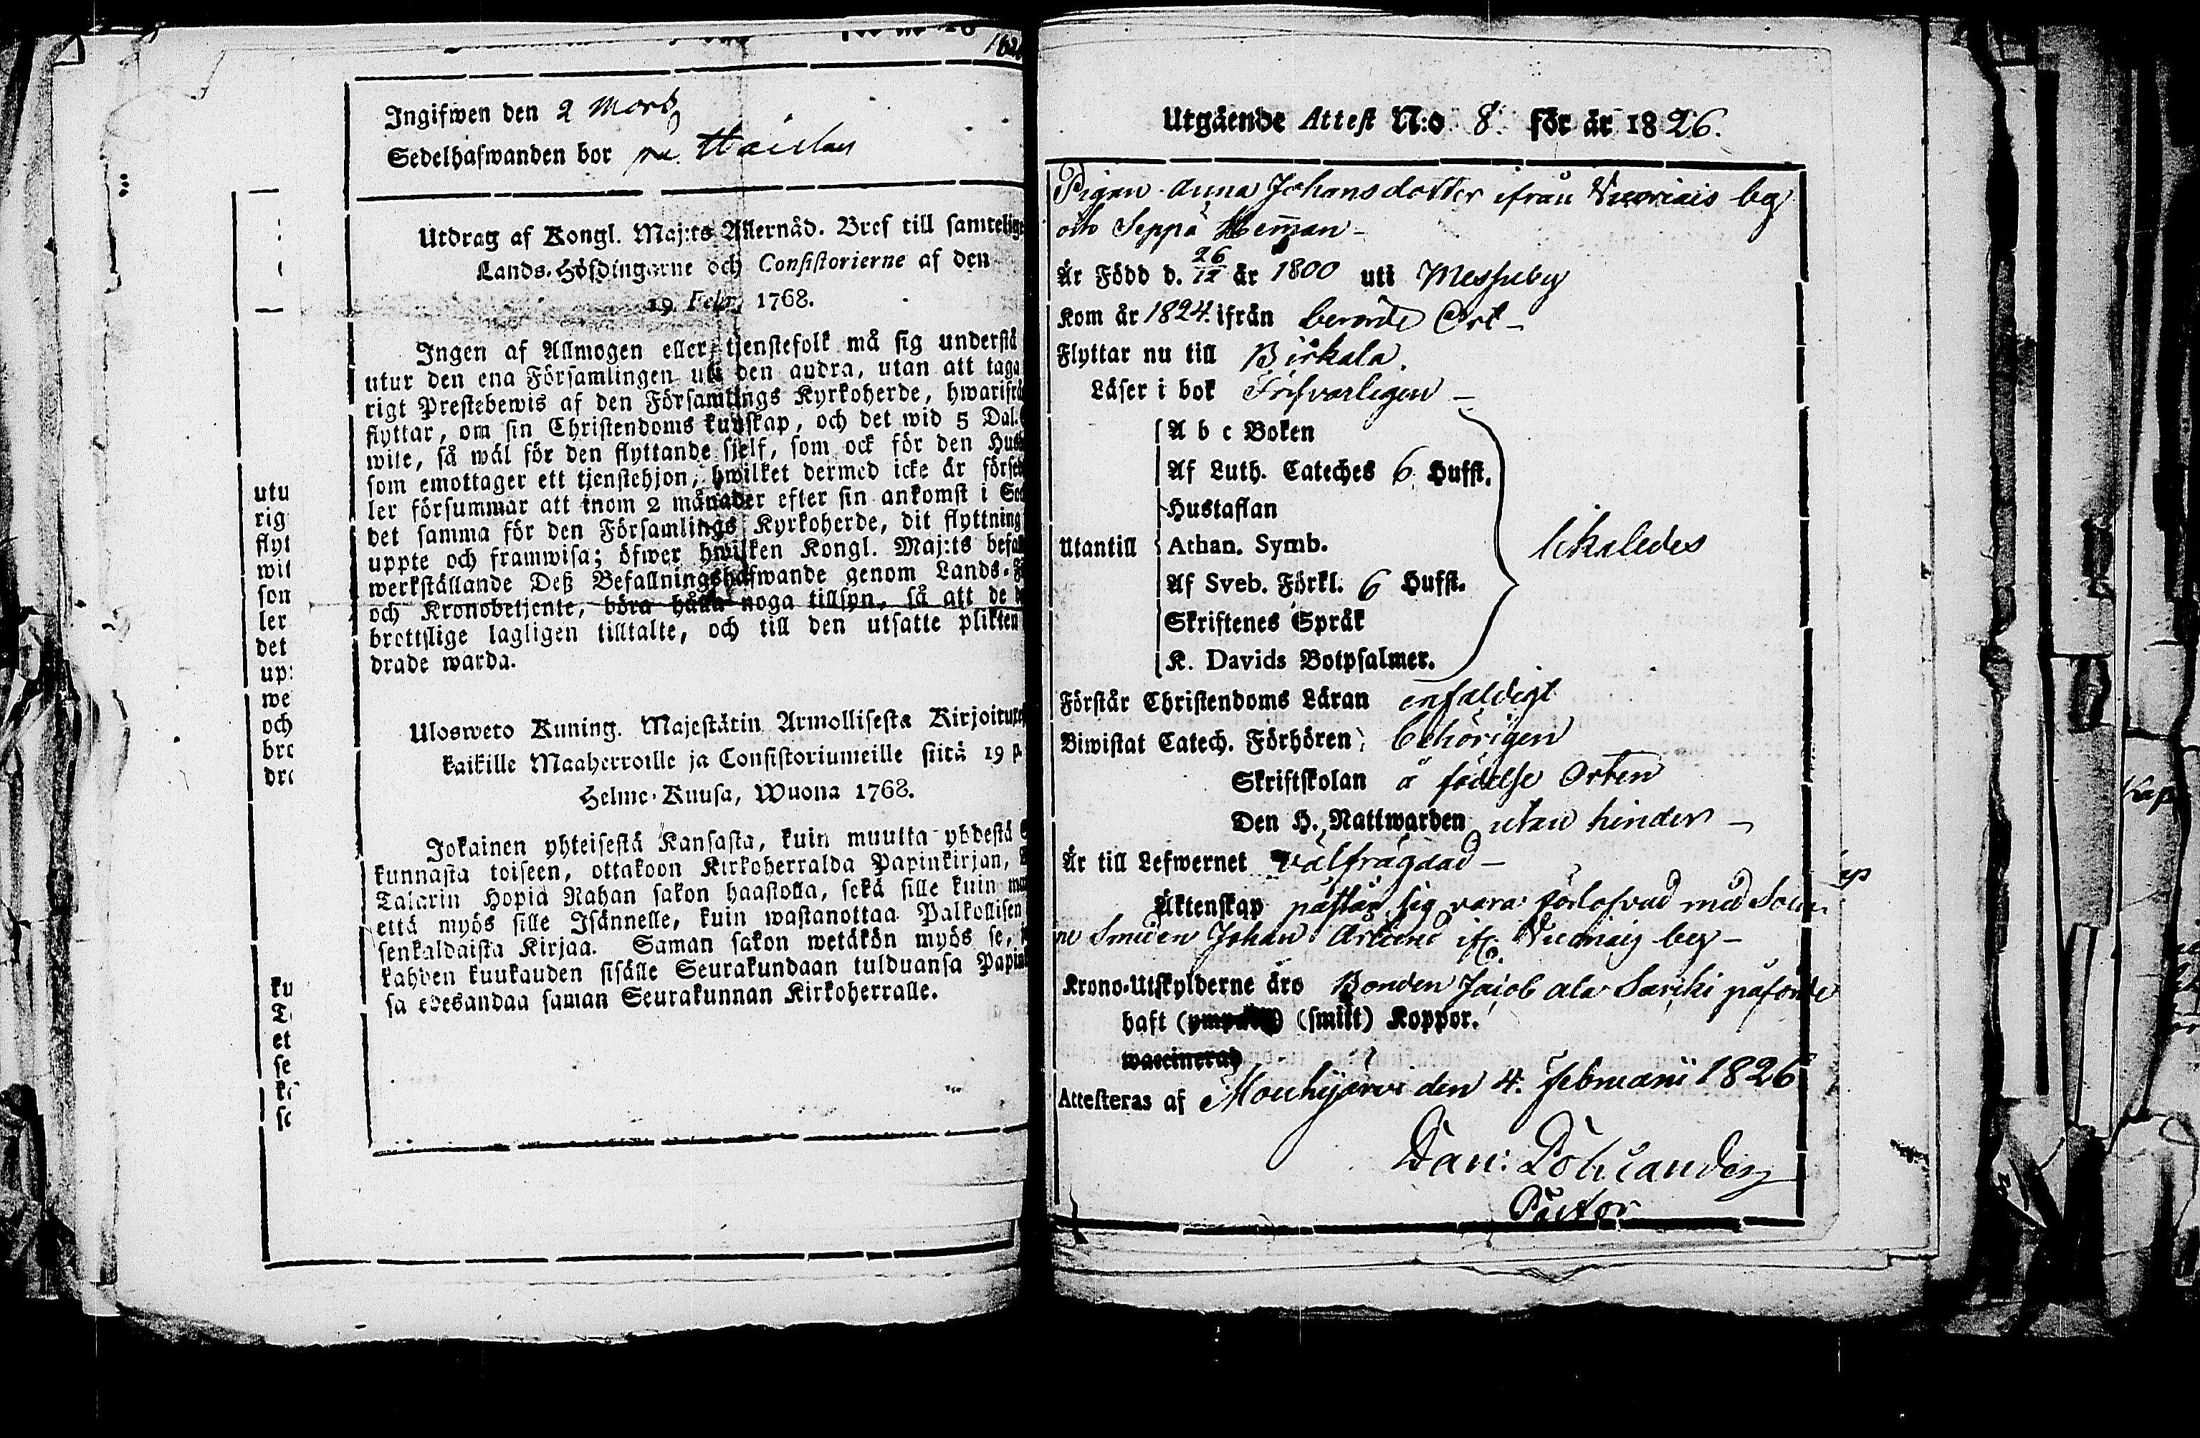 1826
Ingifwen den 2 Mars
Sedelhafwanden bor på
Utdrag af Kongl. Maj:ts Allernåd. Bref till samtelige
Lands-Höfdingarne och Consistorierne af den
19 Febr. 1768.
Ingen af Allmogen eller tjenstefolk må sig understå
utur den ena Församlingen uti den andra, utan att taga
rigt Prestebewis af den Församlings Kyrkoherde, hwarifrå
flyttar, om sin Christendoms kunskap, och det wid 5 Dal.
wite, så wäl för den flyttande sjelf, som ock för den Hus
som emottager ett tjenstehjon, hwilket dermed icke är förse
ler försummar att inom 2 månader efter sin ankomst i
det samma för den Församlings Kyrkoherde, dit flyttning
uppte och framwisa; öfwer hwilken Kongl. Maj:ts befa
werkställande Deß Befallningshafwande genom Lands-
och Kronobetjente, böra hålla noga tillsyn, så att de
brottslige lagligen tilltalte, och till den utsatte plikten
drade warda.
Ulosweto Kuning. Majestätin Armollisesta Kirjoituxe
kaikille Maaherroille ja Consistoriumeille siitä 19 p.
Helme-Kuusa, Wuona 1768.
Jokainen yhteisestä Kansasta, kuin muutta yhdestä
kunnasta toiseen, ottakoon Kirkoherralda Papinkirjan,
Talarin Hopia Rahan sakon haastolla, sekä sille kuin
että myös sille Isännelle, kuin wastanottaa Palkollisen
senkaldaista Kirjaa. Saman sakon wetäkön myös se,
kahden kuukauden sisälle Seurakundaan tulduansa Papin
sa edesandaa saman Seurakunnan Kirkoherralle.
utu
rig
flyt
wit
son
ler
det
up:
we
och
bro
dra
ku
et
se
Utgående Attest N:o 8 för år 1826.
Pigan Anna Johansdotter ifrån by
och Seppä Hemman
Är Född d. 26/12 år 1800 uti Messuby
Kom år 1824 ifrån berörde Ort
Flyttar nu till Birkala
Läser i bok Försvarligen
A b c Boken
Af Luth. Cateches 6 Hufst.
Hustaflan
Utantill Athan. Symb. likaledes
Af Sveb. Förkl. 6 Hufst.
Skriftenes Språk
K. Davids Botpsalmer.
Förstår Christendoms Läran enfaldigt
Biwistat Catech. Förhören behörigen
Skriftskolan å födelse Orten
Den H. Nattwarden utan hinder
Är till Lefwernet välfrägdad
Äktenskap påstår sig vara förlofvad med Socke
ne Smeden Johan by
Krono-Utskylderne äro Bonden Jacob ala Sariki påförde
haft (ympade) (smitt) Koppor.
waccinerad
Attesteras af Mouhijärvi den 4. Februarii 1826
Dan: Polviander
Pastor